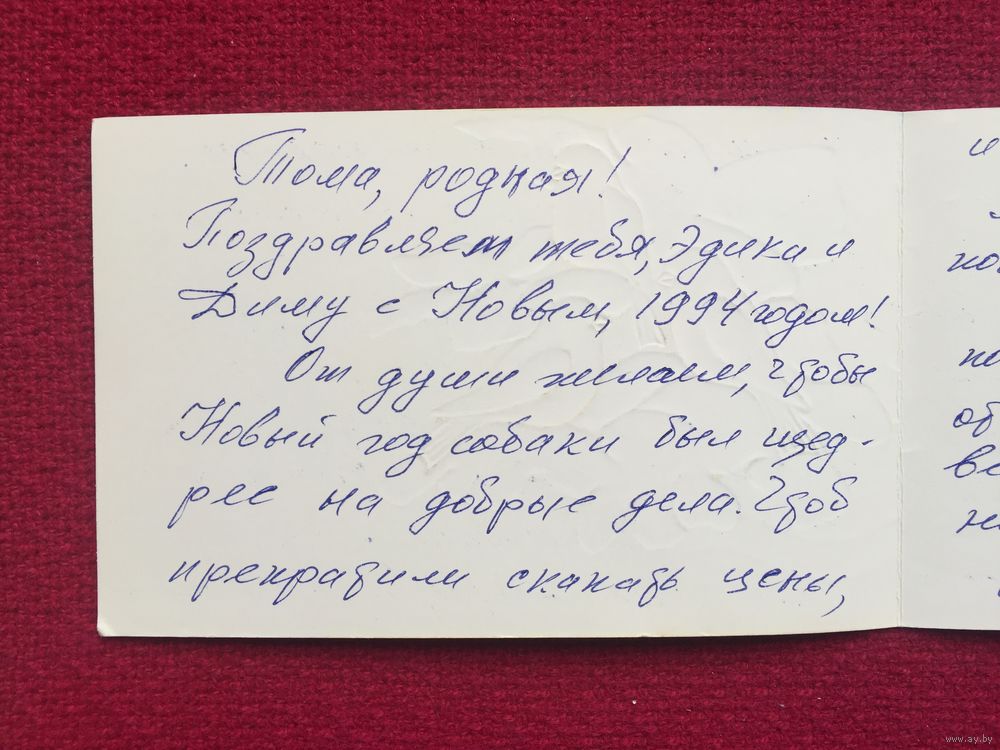 Тома, родная!
Поздравляем тебя, Эдика и
Диму с Новым, 1994 годом!
От души желаем, чтобы
Новый год собаки был щед-
рее на добрые дела. Чтоб
прекратили скакать цены,
и
об
www.ay.by